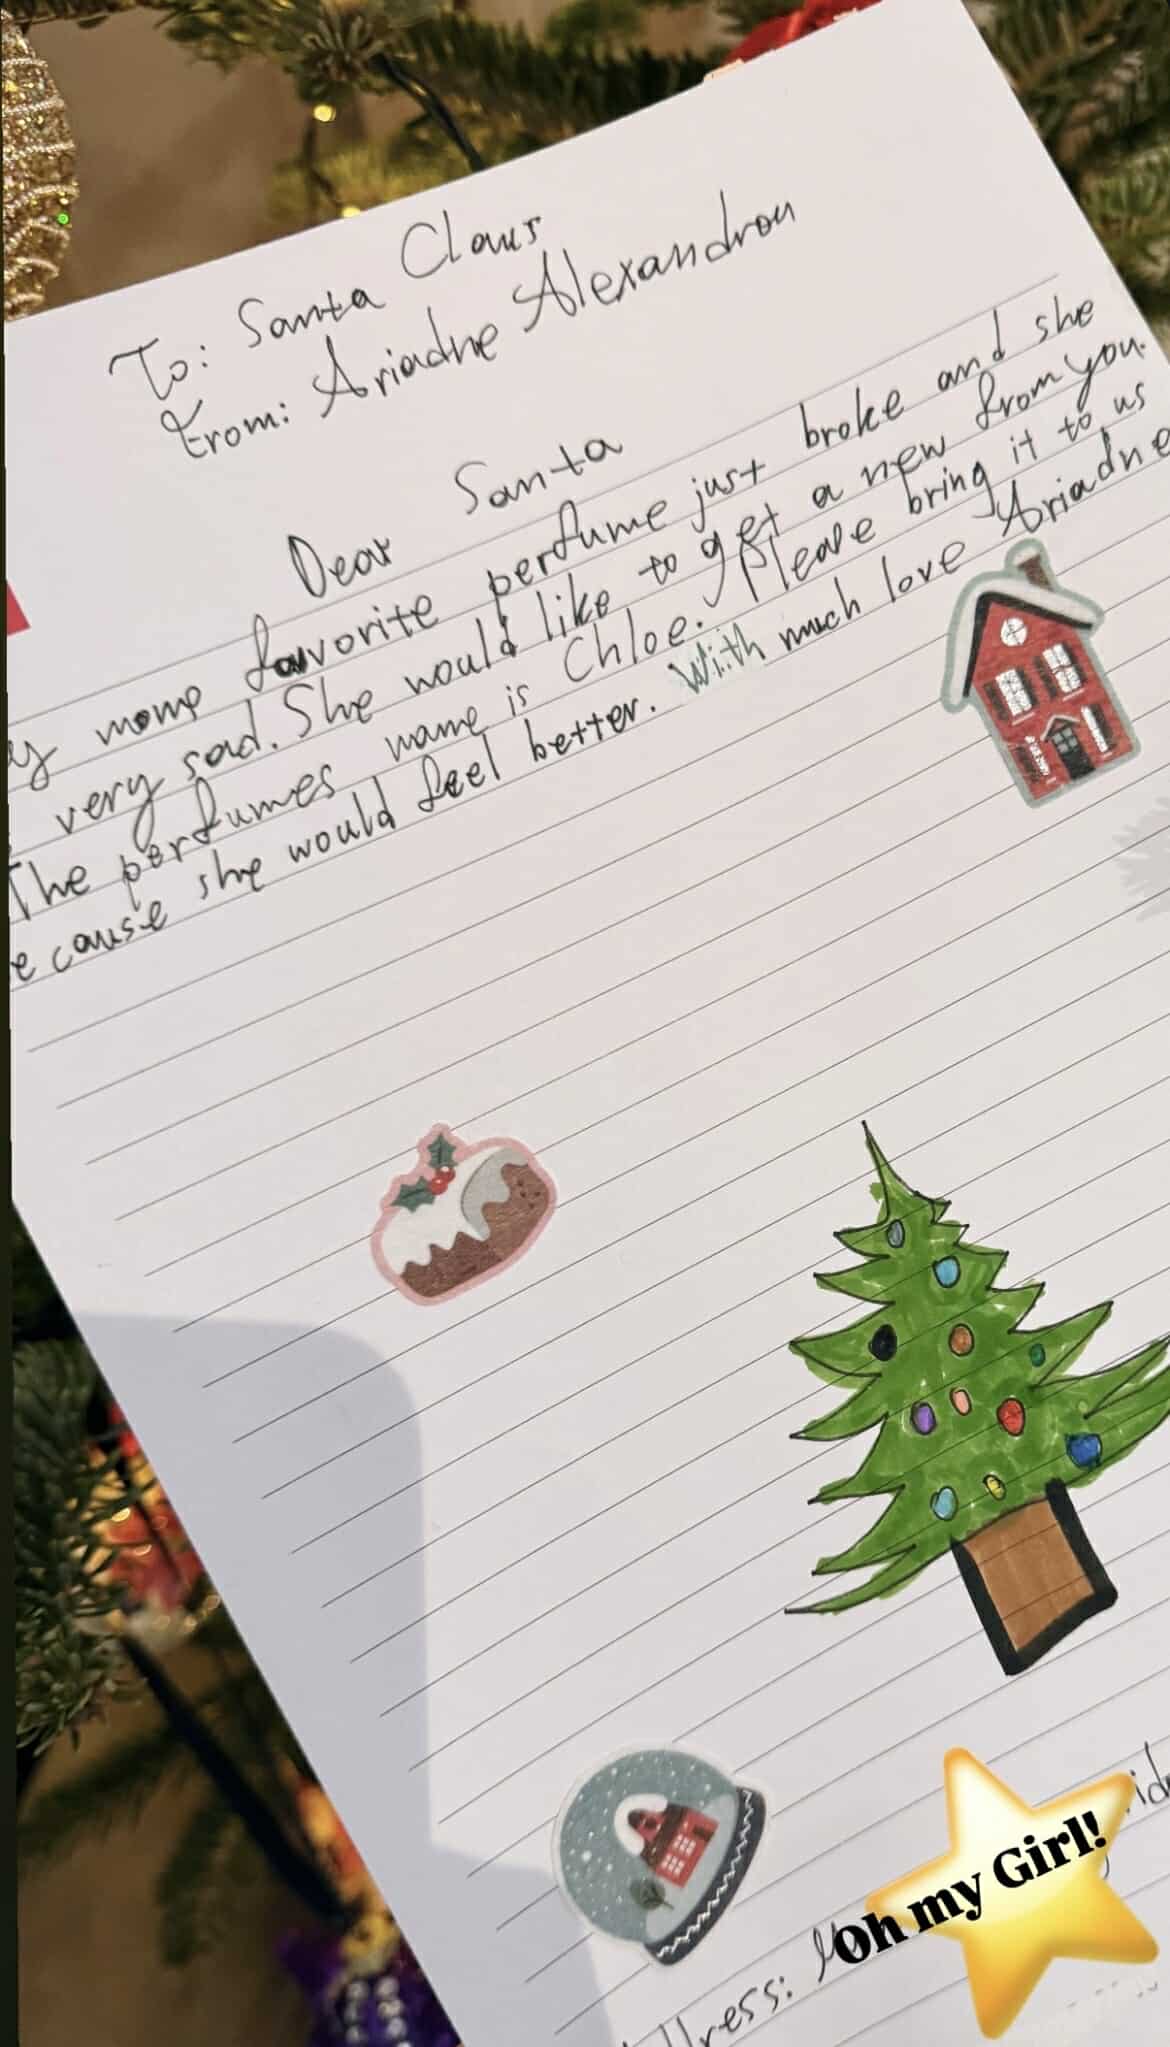 To: Santa Claus
From: Ariadne Alexandrou
Dear Santa
moms favorite perfume just broke and she
very sad. She would like to get a new from you.
The perfumes name is Chloe. Please bring it to us
ecause she would feel better. With much love Ariadne
Oh my Girl!